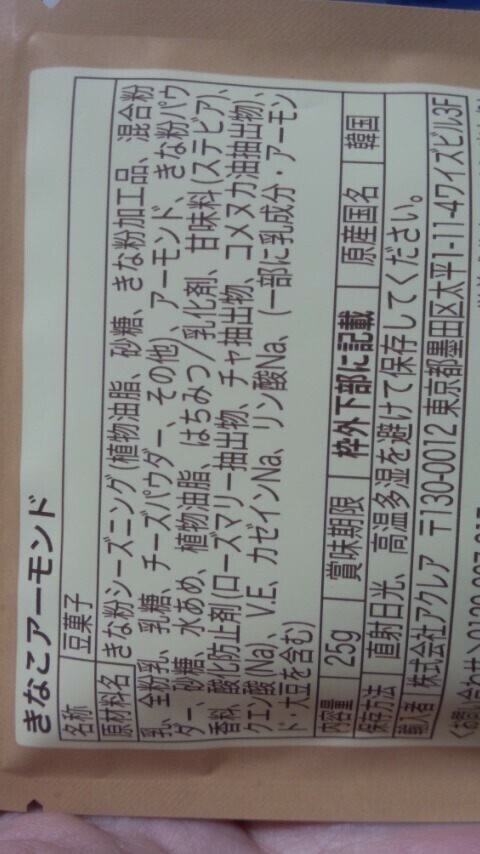 きなこアーモンド
名称 豆菓子
原材料名 きな粉シーズニング(植物油脂、砂糖、きな粉加工品、混合粉
乳、全粉乳、乳糖、チーズパウダー、その他)、アーモンド、きな粉パウ
ダー、砂糖、水あめ、植物油脂、はちみつ/乳化剤、甘味料(ステビア)、
香料、酸化防止剤(ローズマリー抽出物、チャ抽出物、コメヌカ油抽出物、
クエン酸(Na)、V.E、カゼインNa、リン酸Na、(一部に乳成分・アーモン
ド・大豆を含む)
内容量 25g 賞味期限 枠外下部に記載 原産国名 韓国
保存方法 直射日光、高温多湿を避けて保存してください。
輸入者 株式会社アクレア 〒130-0012 東京都墨田区太平1-11-4ワイズビル3F